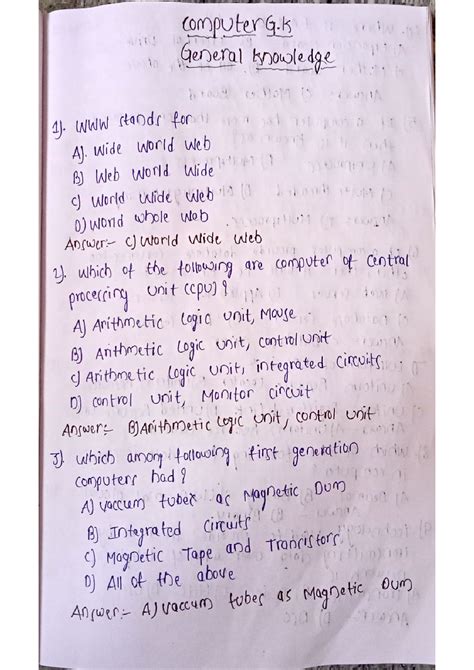 Computer G.K
General Knowledge
1). WWW stands for
A). Wide World Web
B) Web World Wide
C) World Wide Web
D) World whole Web
Answer:- C) World Wide Web
2). Which of the following are computer of Central
processing unit (CPU)?
A) Arithmetic Logic unit, Mouse
B) Arithmetic Logic unit, control unit
C) Arithmetic Logic unit, integrated Circuits
D) control unit, Monitor circuit
Answer:- B) Arithmetic Logic unit, control unit
3) Which among following first generation
computers had?
A) Vaccum tubes as Magnetic Dum
B) Integrated Circuits
C) Magnetic Tape and Tranristors.
D) All of the above
Answer:- A) Vaccum tubes as Magnetic Dum